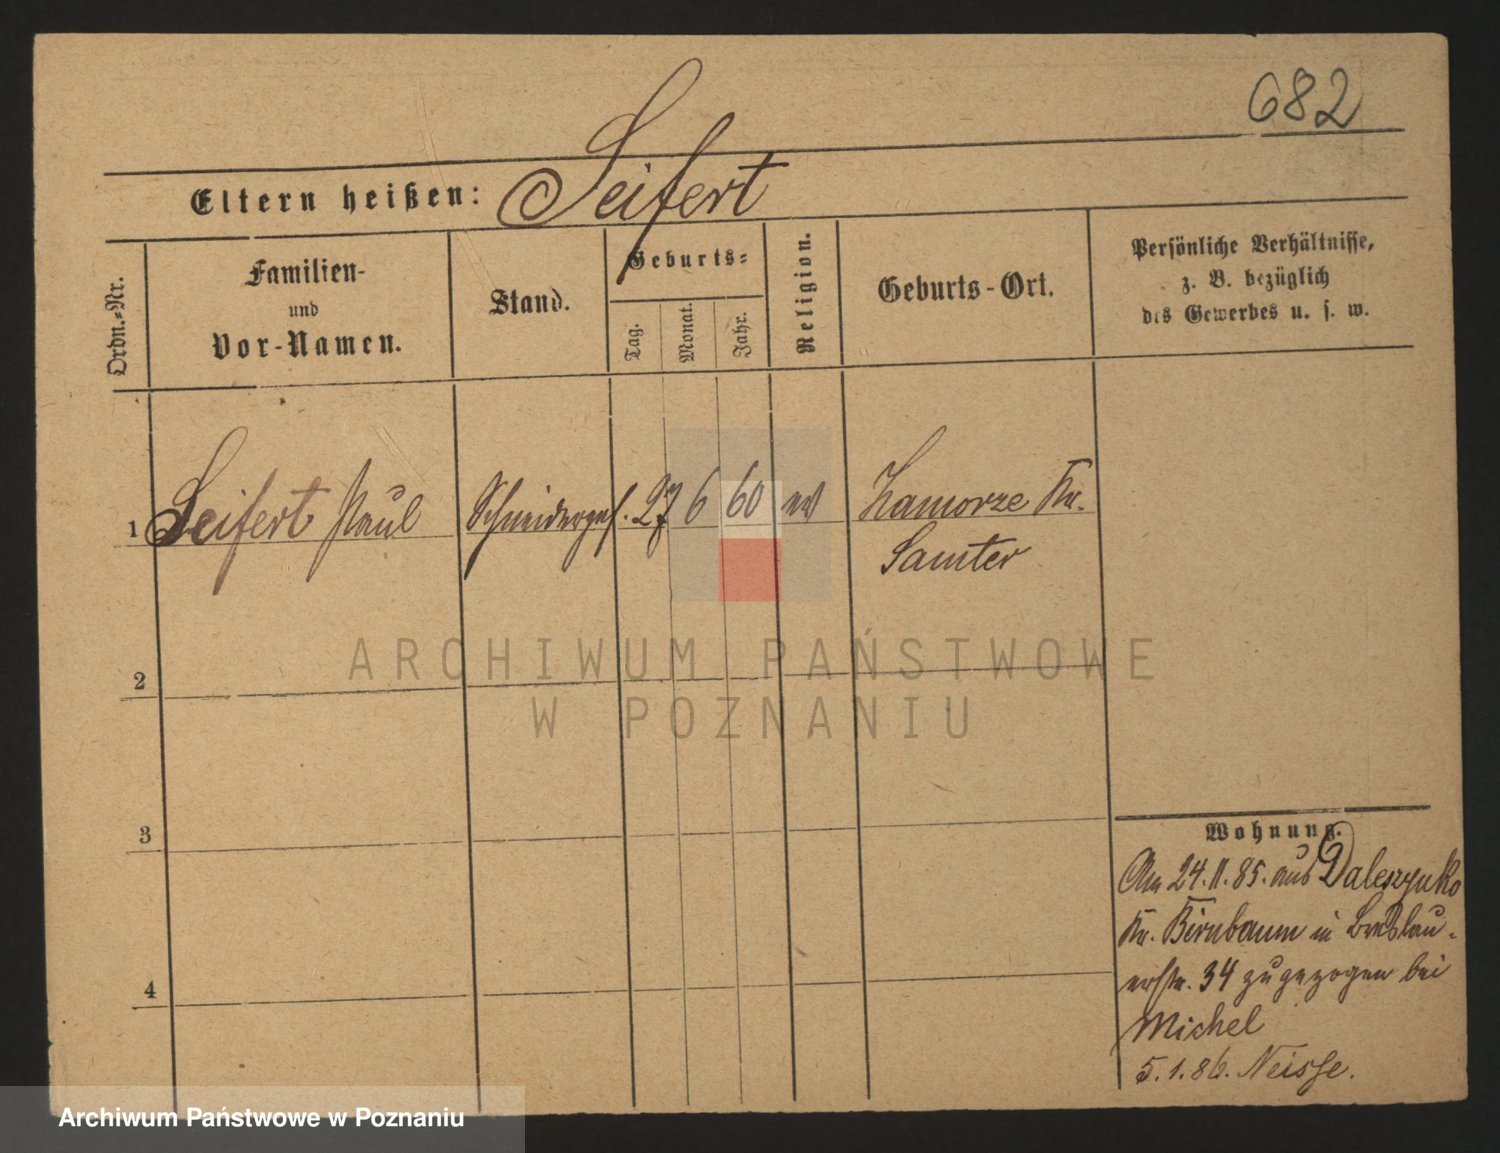 682
Eltern heißen: Seifert
Ordn.-Nr.
Familien-
und
Vor-Namen.
Stand.
Geburts-
Tag.
Monat.
Jahr.
Religion.
Geburts-Ort.
Persönliche Verhältnisse,
z. B. bezüglich
des Gewerbes u. s. w.
1 Seifert Paul Schneiderges. 27 6 60 ev Zamorze Kr.
Samter
2
3
4
Wohnung.
Am 24.11.85. aus Daleszynko
Kr. Birnbaum in Breslau-
erstr. 34 zugezogen bei
Michel
5.1.86. Neisse.
ARCHIWUM PAŃSTWOWE
W POZNANIU
Archiwum Państwowe w Poznaniu